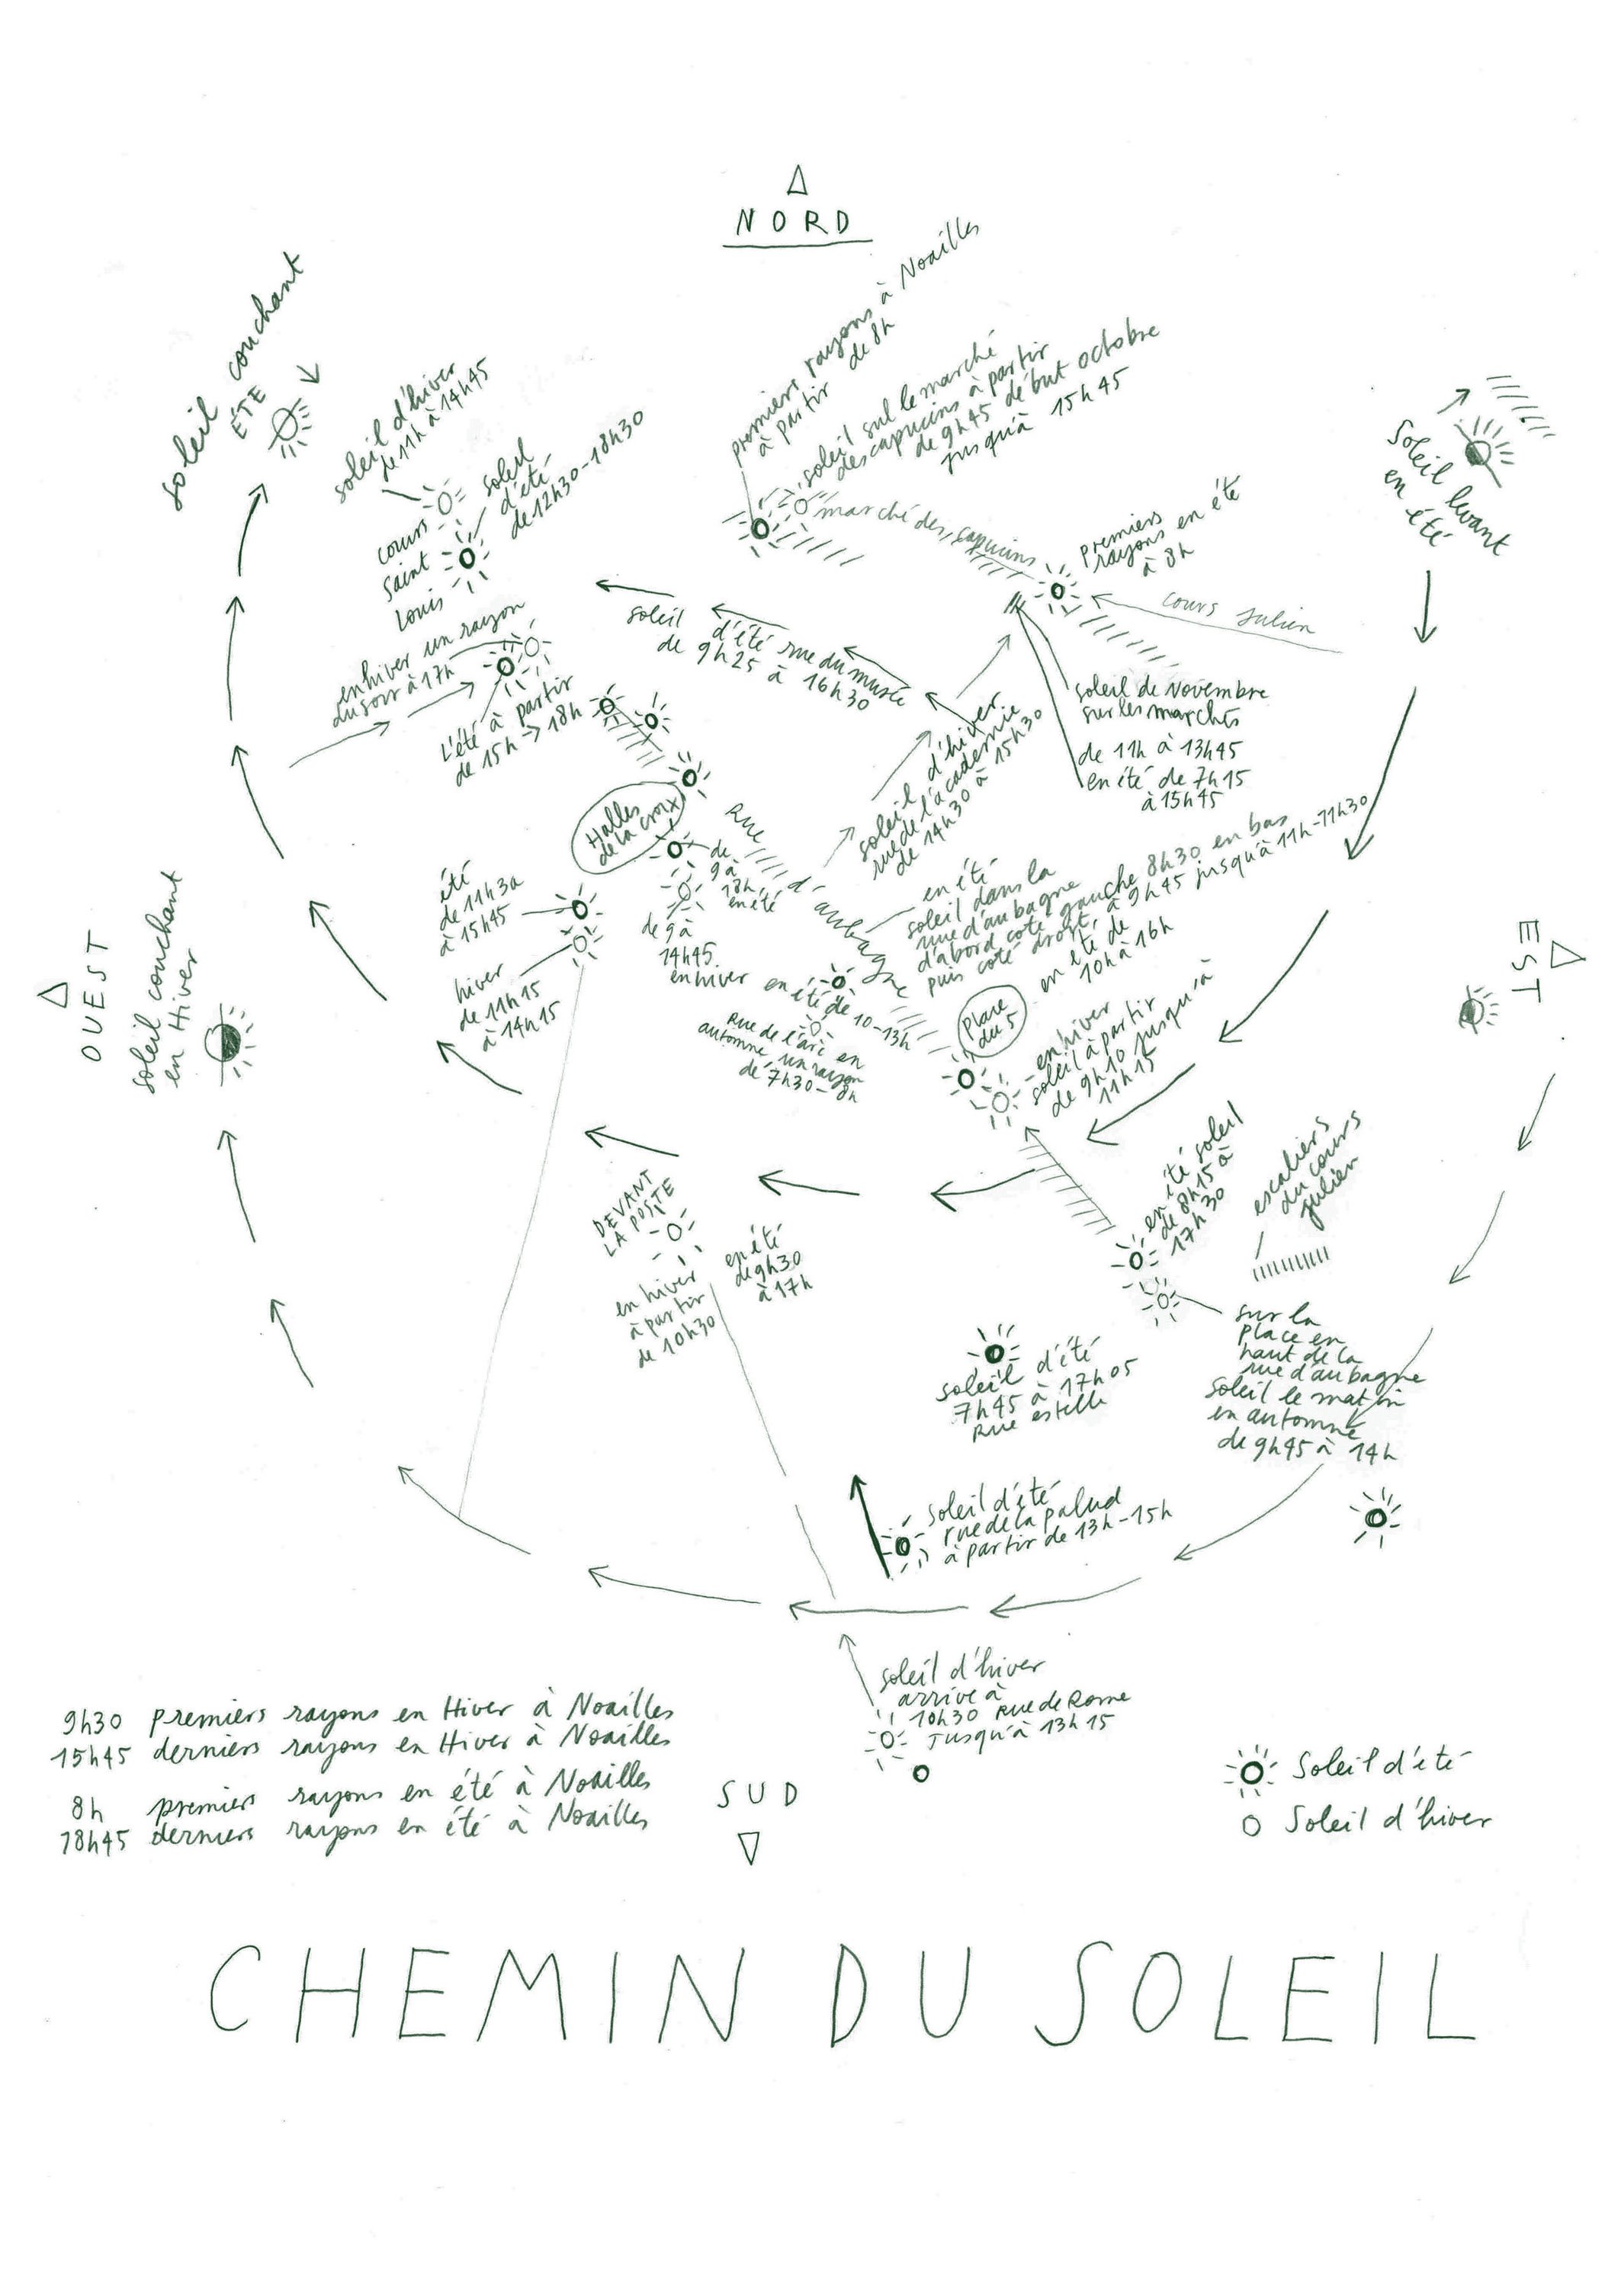 NORD
premiers rayons à Noailles
à partir de 8h
soleil sur le marché
des capucins à partir
de 9h45 début octobre
jusqu'à 15h45
marché des capucins
premiers
rayons en été
à 8h
cours Julien
soleil levant
en été
soleil couchant
ÉTÉ
soleil d'hiver
de 11h à 14h45
soleil
d'été
de 12h30-18h30
cours
saint
Louis
en hiver un rayon
du soir à 17h
L'été à partir
de 15h → 18h
soleil d'été rue du musée
de 9h25 à 16h30
soleil de Novembre
sur les marchés
de 11h à 13h45
en été de 7h15
à 15h45
soleil d'hiver
rue de l'académie
de 14h30 à 15h30
Halles
de la croix
Rue d'aubagne
de
9à
18h
en été
de 9à
14h45
en hiver
été
de 11h30
à 15h45
hiver
de 11h15
à 14h15
en été
soleil dans la
rue d'aubagne
d'abord coté gauche 8h30 en bas
puis coté droit, à 9h45 jusqu'à 11h-11h30
en été de
10h à 16h
en été de 10-13h
Rue de l'arc en
automne, un rayon
de 7h30-8h
Place
du 5
en hiver
soleil à partir
de 9h10 jusqu'à
11h15
EST
OUEST
soleil couchant
en Hiver
DEVANT
LA POSTE
en été
de 9h30
à 17h
en hiver
à partir
de 10h30
en été soleil
de 8h15 à
17h30
escaliers
du cours
julien
sur la
place en
haut de la
rue d'aubagne
soleil le matin
en automne
de 9h45 à 14h
soleil d'été
7h45 à 17h05
Rue estelle
soleil d'été
rue de la palud
à partir de 13h-15h
soleil d'hiver
arrive à
10h30 Rue de Rome
Jusqu'à 13h15
9h30 premiers rayons en Hiver à Noailles
15h45 derniers rayons en Hiver à Noailles
8h premiers rayons en été à Noailles
18h45 derniers rayons en été à Noailles
SUD
Soleil d'été
Soleil d'hiver
CHEMIN DU SOLEIL